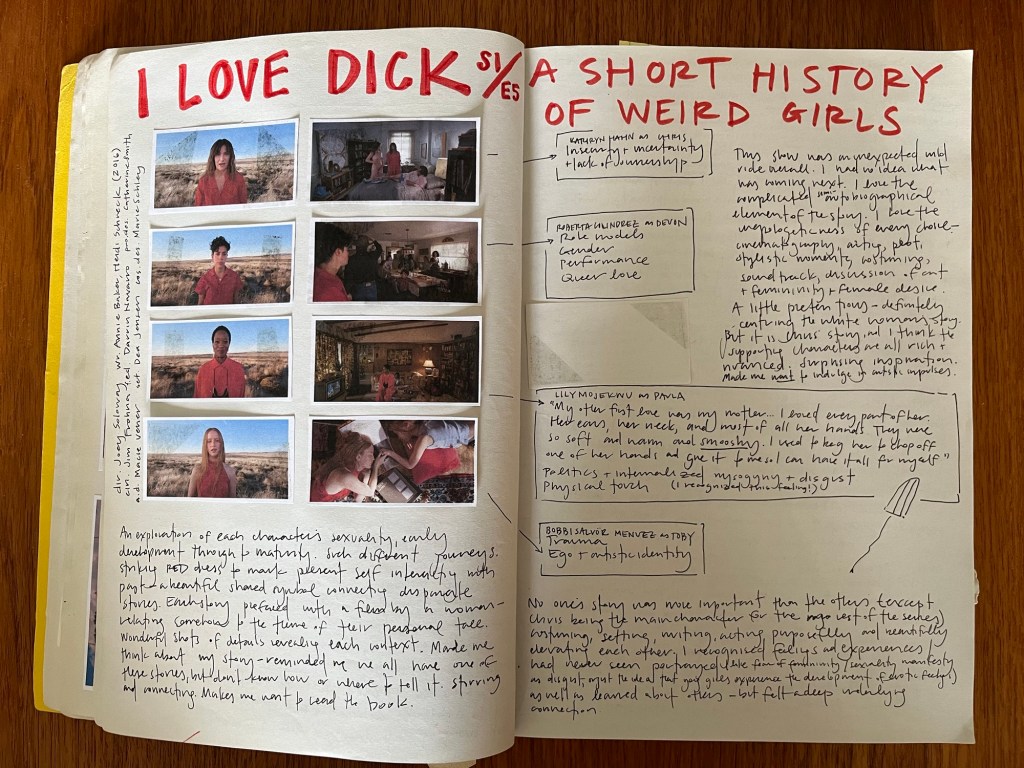 I LOVE DICK S1/E5
dir. Joey Soloway wr. Annie Baker, Heidi Schreck (2016)
cin. Jim Frohna ed. Darrin Navarro prodes. Catherine Smith
a.d. Macie Vener set dec Dea Jensen cos des. Marie Schley
An exploration of each character's sexuality, early
development through to maturity. Such different journeys.
striking RED dress to mark present self interacting with
past – a beautiful shared symbol connecting disparate
stories. Each story prefaced with a film by a woman –
relating somehow to the theme of their personal tale.
Wonderful shots of details revealing each context. Made me
think about my story – reminded me we all have one of
these stories, but don't know how or where to tell it. stirring
and connecting. Makes me want to read the book.
A SHORT HISTORY
OF WEIRD GIRLS
KATHRYN HAHN as CHRIS
Insecurity + uncertainty
+ lack of ownership
ROBERTA COLINDREZ as DEVON
Role models
Gender
Performance
Queer love
This show was an unexpected wild
ride overall. I had no idea what
was coming next. I love the
complicated autobiographical
element of the story. I love the
unapologeticness of every choice –
cinematography, acting, plot,
stylistic moments, costuming,
soundtrack, discussion of art
+ femininity + female desire.
A little pretentious – definitely
centring the white woman's story.
But it is Chris' story, and I think the
supporting characters are all rich +
nuanced. Surprising inspiration.
Made me want to indulge in artistic impulses.
LILY MOJEKWU as PAULA
"My other first love was my mother... I loved every part of her.
Her ears, her neck, and most of all her hands. They were
so soft and warm and smooshy. I used to beg her to chop off
one of her hands and give it to me so I can have it all for myself"
Politics + internalized mysogyny + disgust
Physical touch (I recognized this feeling!)
BOBBI SALVÖR MENUEZ as TOBY
Trauma
Ego + artistic identity
No one's story was more important than the others (except
Chris being the main character for the rest of the series)
costuming, setting, writing, acting purposefully and beautifully
elevating each other. I recognised feelings and experiences I
had never seen portrayed (like fear of femininity/sexuality manifesting
as disgust, or just the idea that girls experience the development of erotic feelings)
as well as learned about others – but felt a deep underlying
connection